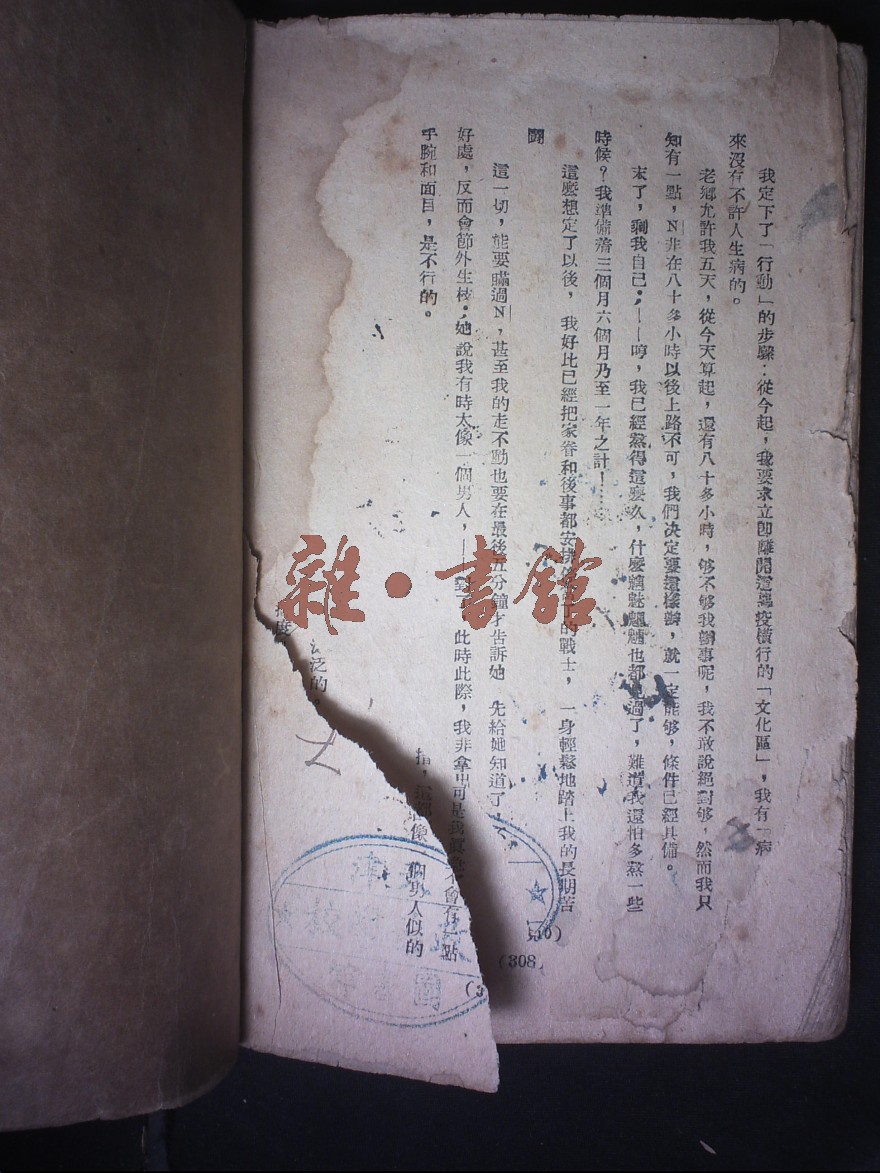 我定下了「行動」的步驟：從今起，我要求立卽離開這塲疫橫行的「文化區」，我有一病
來沒有不許人生病的。
老鄉允許我五天，從今天算起，還有八十多小時，够不够我辦事呢，我不敢說絕對够，然而我只
知有一點，N非在八十多小時以後上路不可，我們决定要這樣辦，就一定能够，條件已經具備。
末了，剩我自己；——哼，我已經熬得這麼久，什麼魑魅魍魎也都見過了，難道我還怕多熬一些
時候？我準備着三個月六個月乃至一年之計！……
這麼想定了以後，我好比已經把家眷和後事都安排的戰士，一身輕鬆地踏上我的長期苦
鬭
這一切，能要瞞過N，甚至我的走不動也要在最後五分鐘才吿訴她 先給她知道了，不
好處，反而會節外生枝；她說我有時太像一個男人，——對了 此時此際，我非拿出
手腕和面目，是不行的。
可是我
會有一點
指，
像
個男人似的
泛的
度
雜·書館
圖
(308